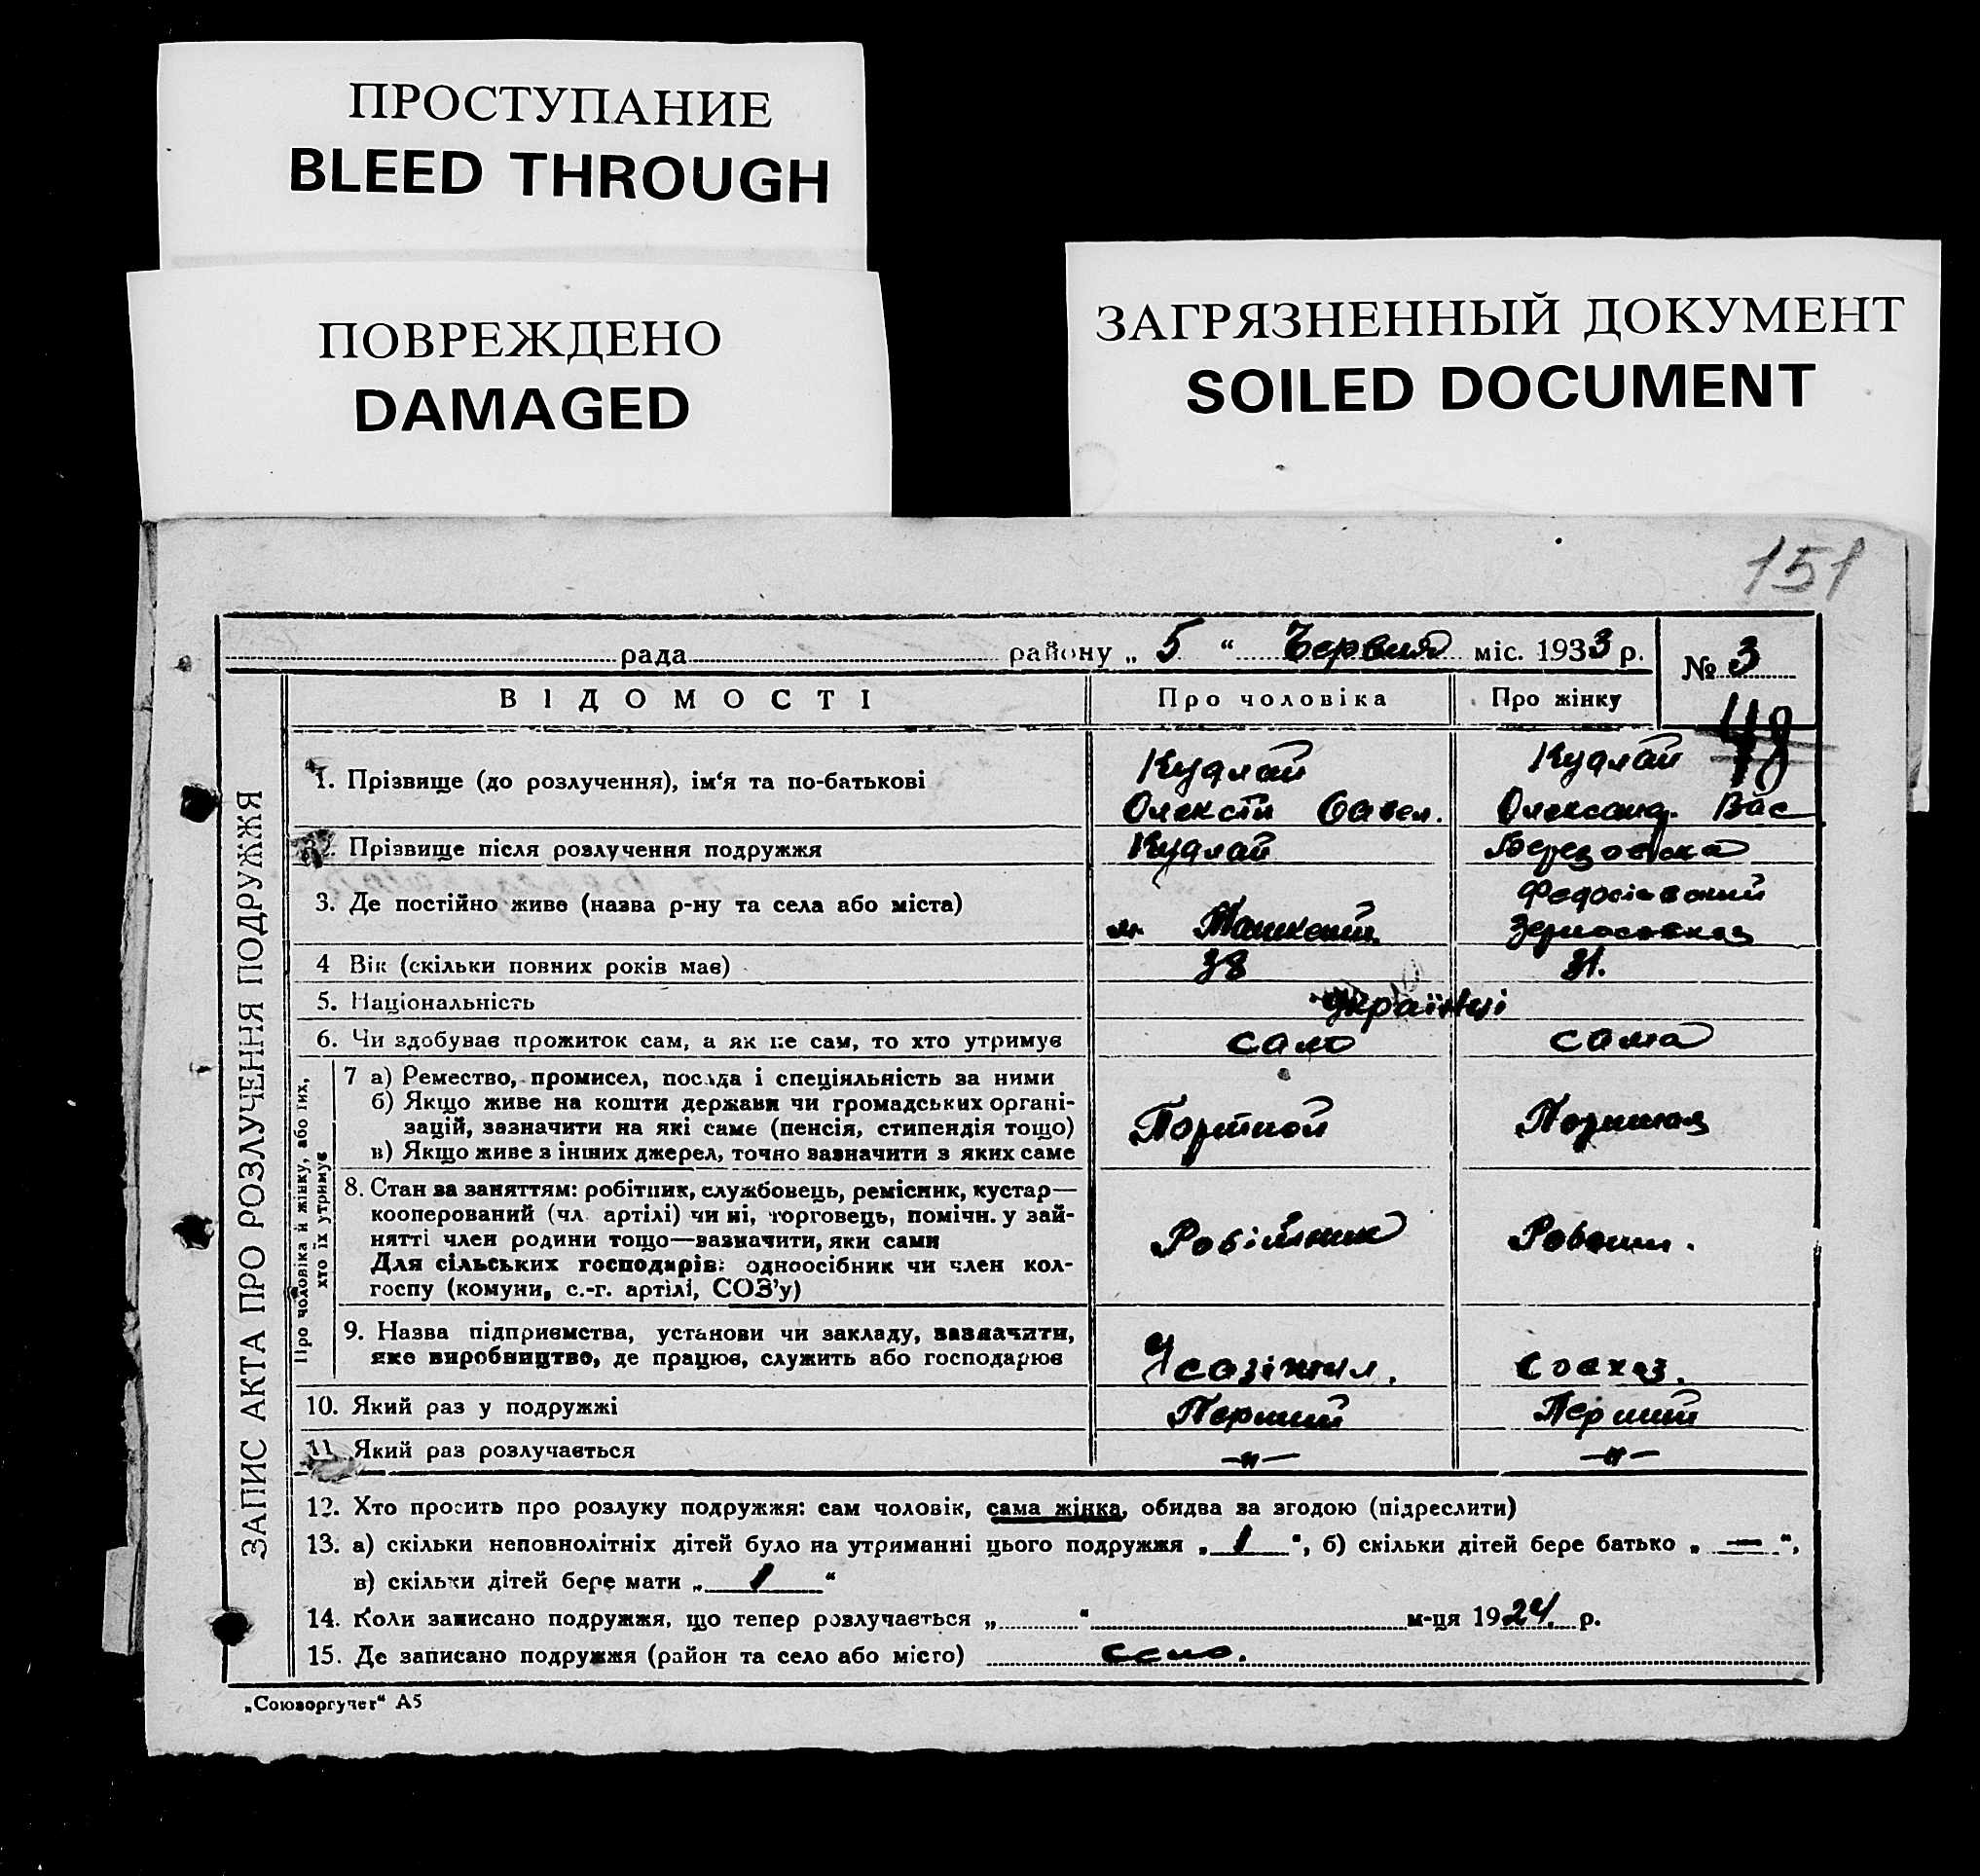 ПРОСТУПАНИЕ
BLEED THROUGH
ПОВРЕЖДЕНО
DAMAGED
ЗАГРЯЗНЕННЫЙ ДОКУМЕНТ
SOILED DOCUMENT
151
рада районy „ 5 “ Червня міс. 1933 р.
№ 3
48
ВІДОМОСТІ Про чоловіка Про жінку
ЗАПИС АКТА ПРО РОЗЛУЧЕННЯ ПОДРУЖЖЯ
1. Прізвище (до розлучення), ім‘я та по-батькові
Кудлай Кудлай
Олексій Савел. Олександ. Вас
2. Прізвище після розлучення подружжя Кудлай Березовска
3. Де постійно живе (назва р-ну та села або міста)
м. Ташкент
4 Вік (скільки повних років має) 38 31.
5. Національність Українці
6. Чи здобував прожиток сам, а як не сам, то хто утримує сам сама
Про чоловіка й жінку, або тих,
хто їх утримує
7 а) Ремество, промисел, посада і спеціяльність за ними
б) Якщо живе на кошти держави чи громадських органі-
зацій, зазначити на які саме (пенсія, стипендія тощо)
в) Якщо живе з інших джерел, точно зазначити з яких саме
Портной
8. Стан за заняттям: робітник, службовець, ремісник, кустар—
кооперований (чл. артілі) чи ні, торговець, помічн. у зай-
нятті член родини тощо—зазначити, яки сами
Для сільських господарів: одноосібник чи член кол-
госпу (комуни, с.-г. артілі, СОЗ’у)
Робітник
9. Назва підприємства, установи чи закладу, зазначити,
яке виробництво, де працює, служить або господарює
Совхоз.
10. Який раз у подружжі Перший Перший
11. Який раз розлучається —„— —„—
12. Хто просить про розлуку подружжя: сам чоловік, сама жінка, обидва за згодою (підреслити)
13. а) скільки неповнолітніх дітей було на утриманні цього подружжя „ 1 “, б) скільки дітей бере батько „ — “,
в) скільки дітей бере мати „ 1 “
14. Коли записано подружжя, що тепер розлучається „ “ м-ця 1924 р.
15. Де записано подружжя (район та село або місто)
„Союзоргучет“ А5